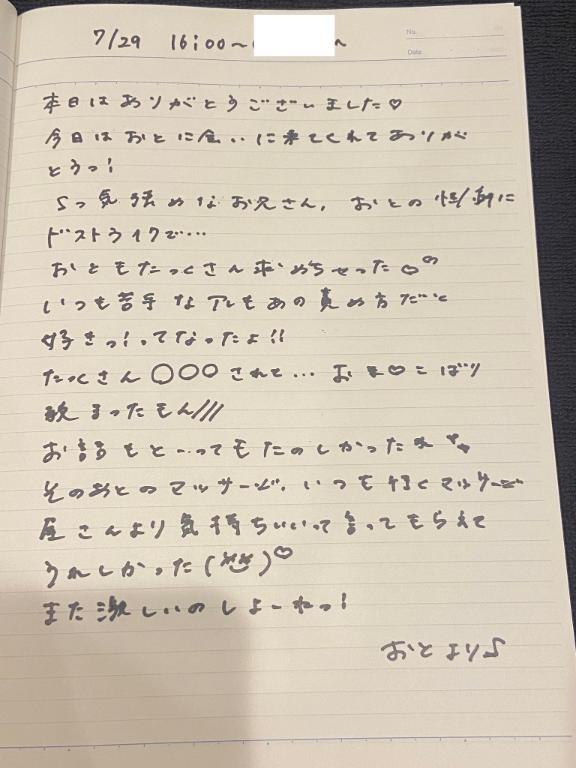 7/29 16:00〜
No.
Date
本日はありがとうございました♡
今日はおとに会いに来てくれてありが
とうっ!
Sっ気強めなお兄さん、おとの性癖に
ドストライクで…
おともたっくさん求めちゃった♡
いつも苦手なアレもあの責め方だと
好きっ!ってなったよ!!
たっくさん○○○されて… お ♡こばり
もん///
お話もとーってもたのしかったね
そのあとのマッサージ、いつも行くマッサージ
屋さんより気持ちいいって言ってもらえて
うれしかった( )♡
また激しいのしよーねっ!
おとより♪